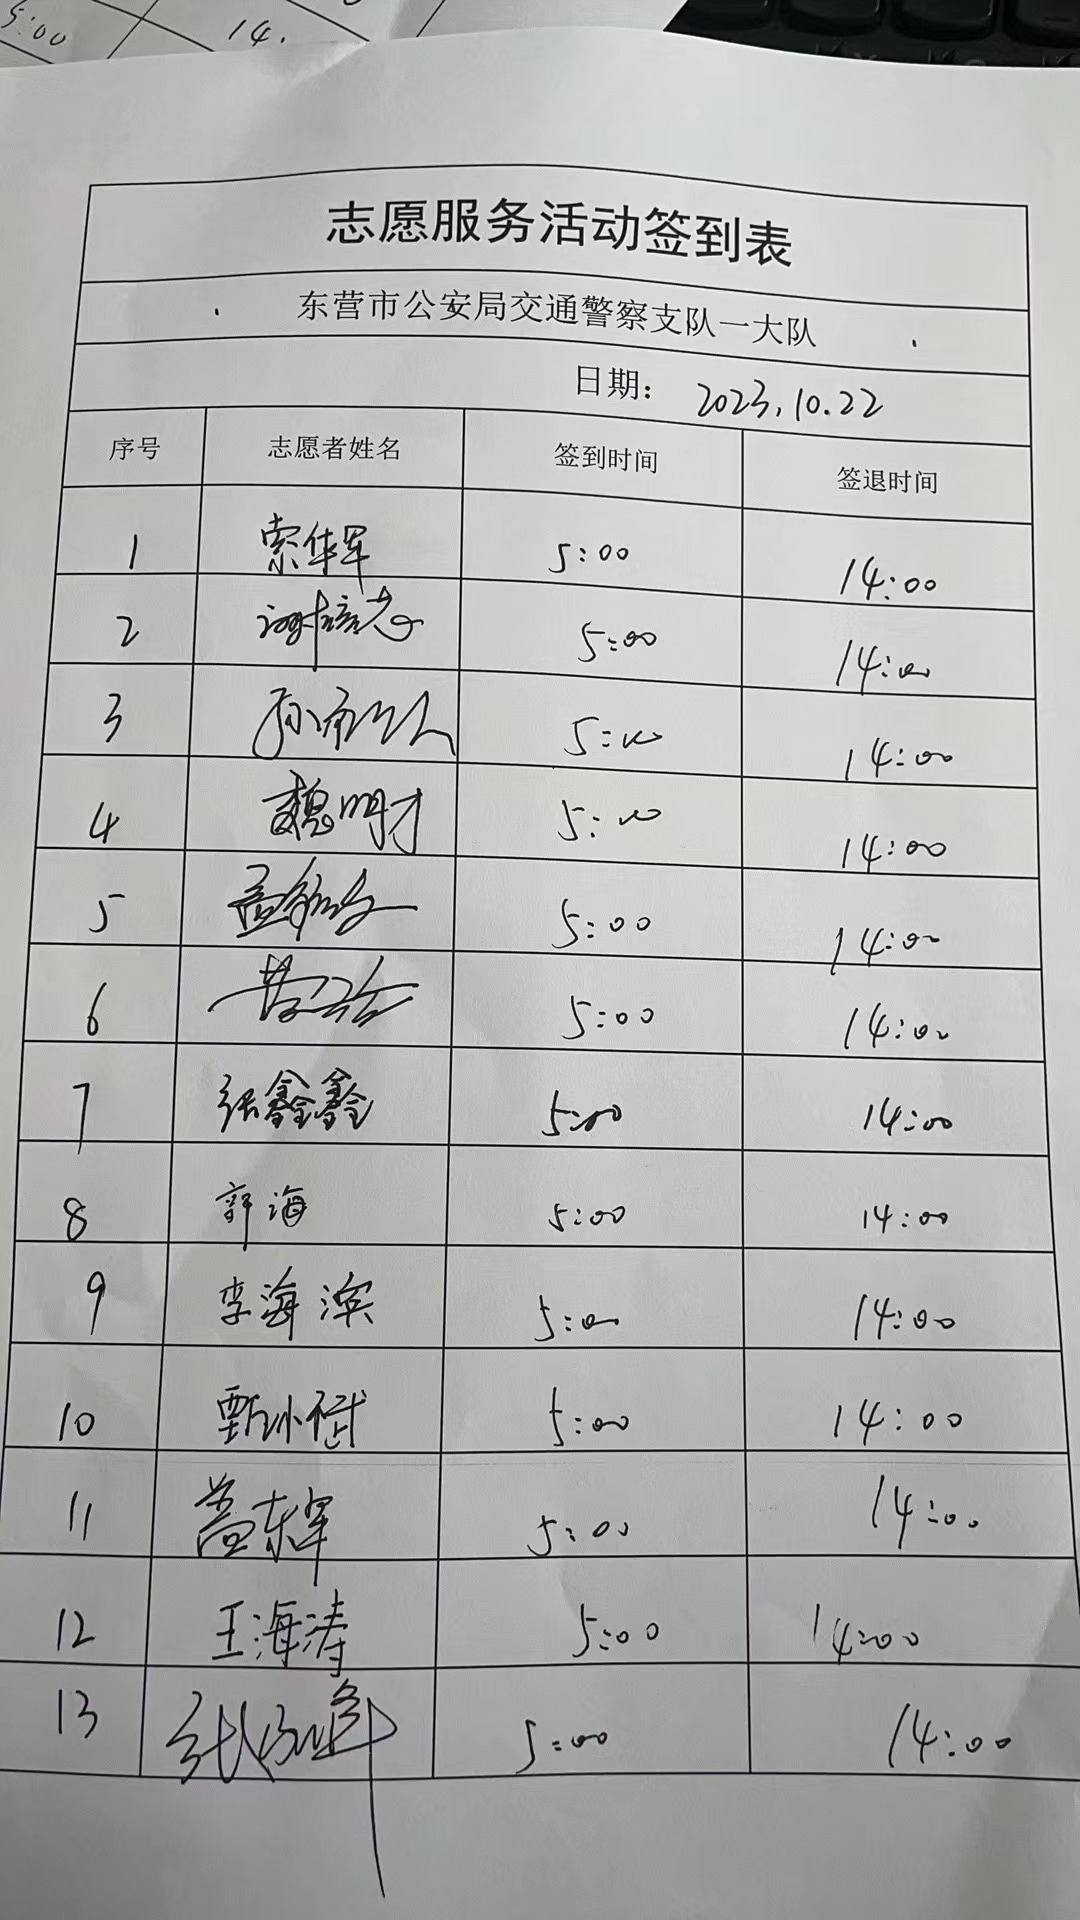 5:00 14.
志愿服务活动签到表
东营市公安局交通警察支队一大队
日期: 2023.10.22
序号 志愿者姓名 签到时间 签退时间
1 索华军 5:00 14:00
2 谢培志 5:00 14:00
3 5:00 14:00
4 魏明才 5:00 14:00
5 5:00 14:00
6 5:00 14:00
7 张鑫鑫 5:00 14:00
8 郭海 5:00 14:00
9 李海滨 5:00 14:00
10 甄小斌 5:00 14:00
11 盖东军 5:00 14:00
12 王海涛 5:00 14:00
13 5:00 14:00